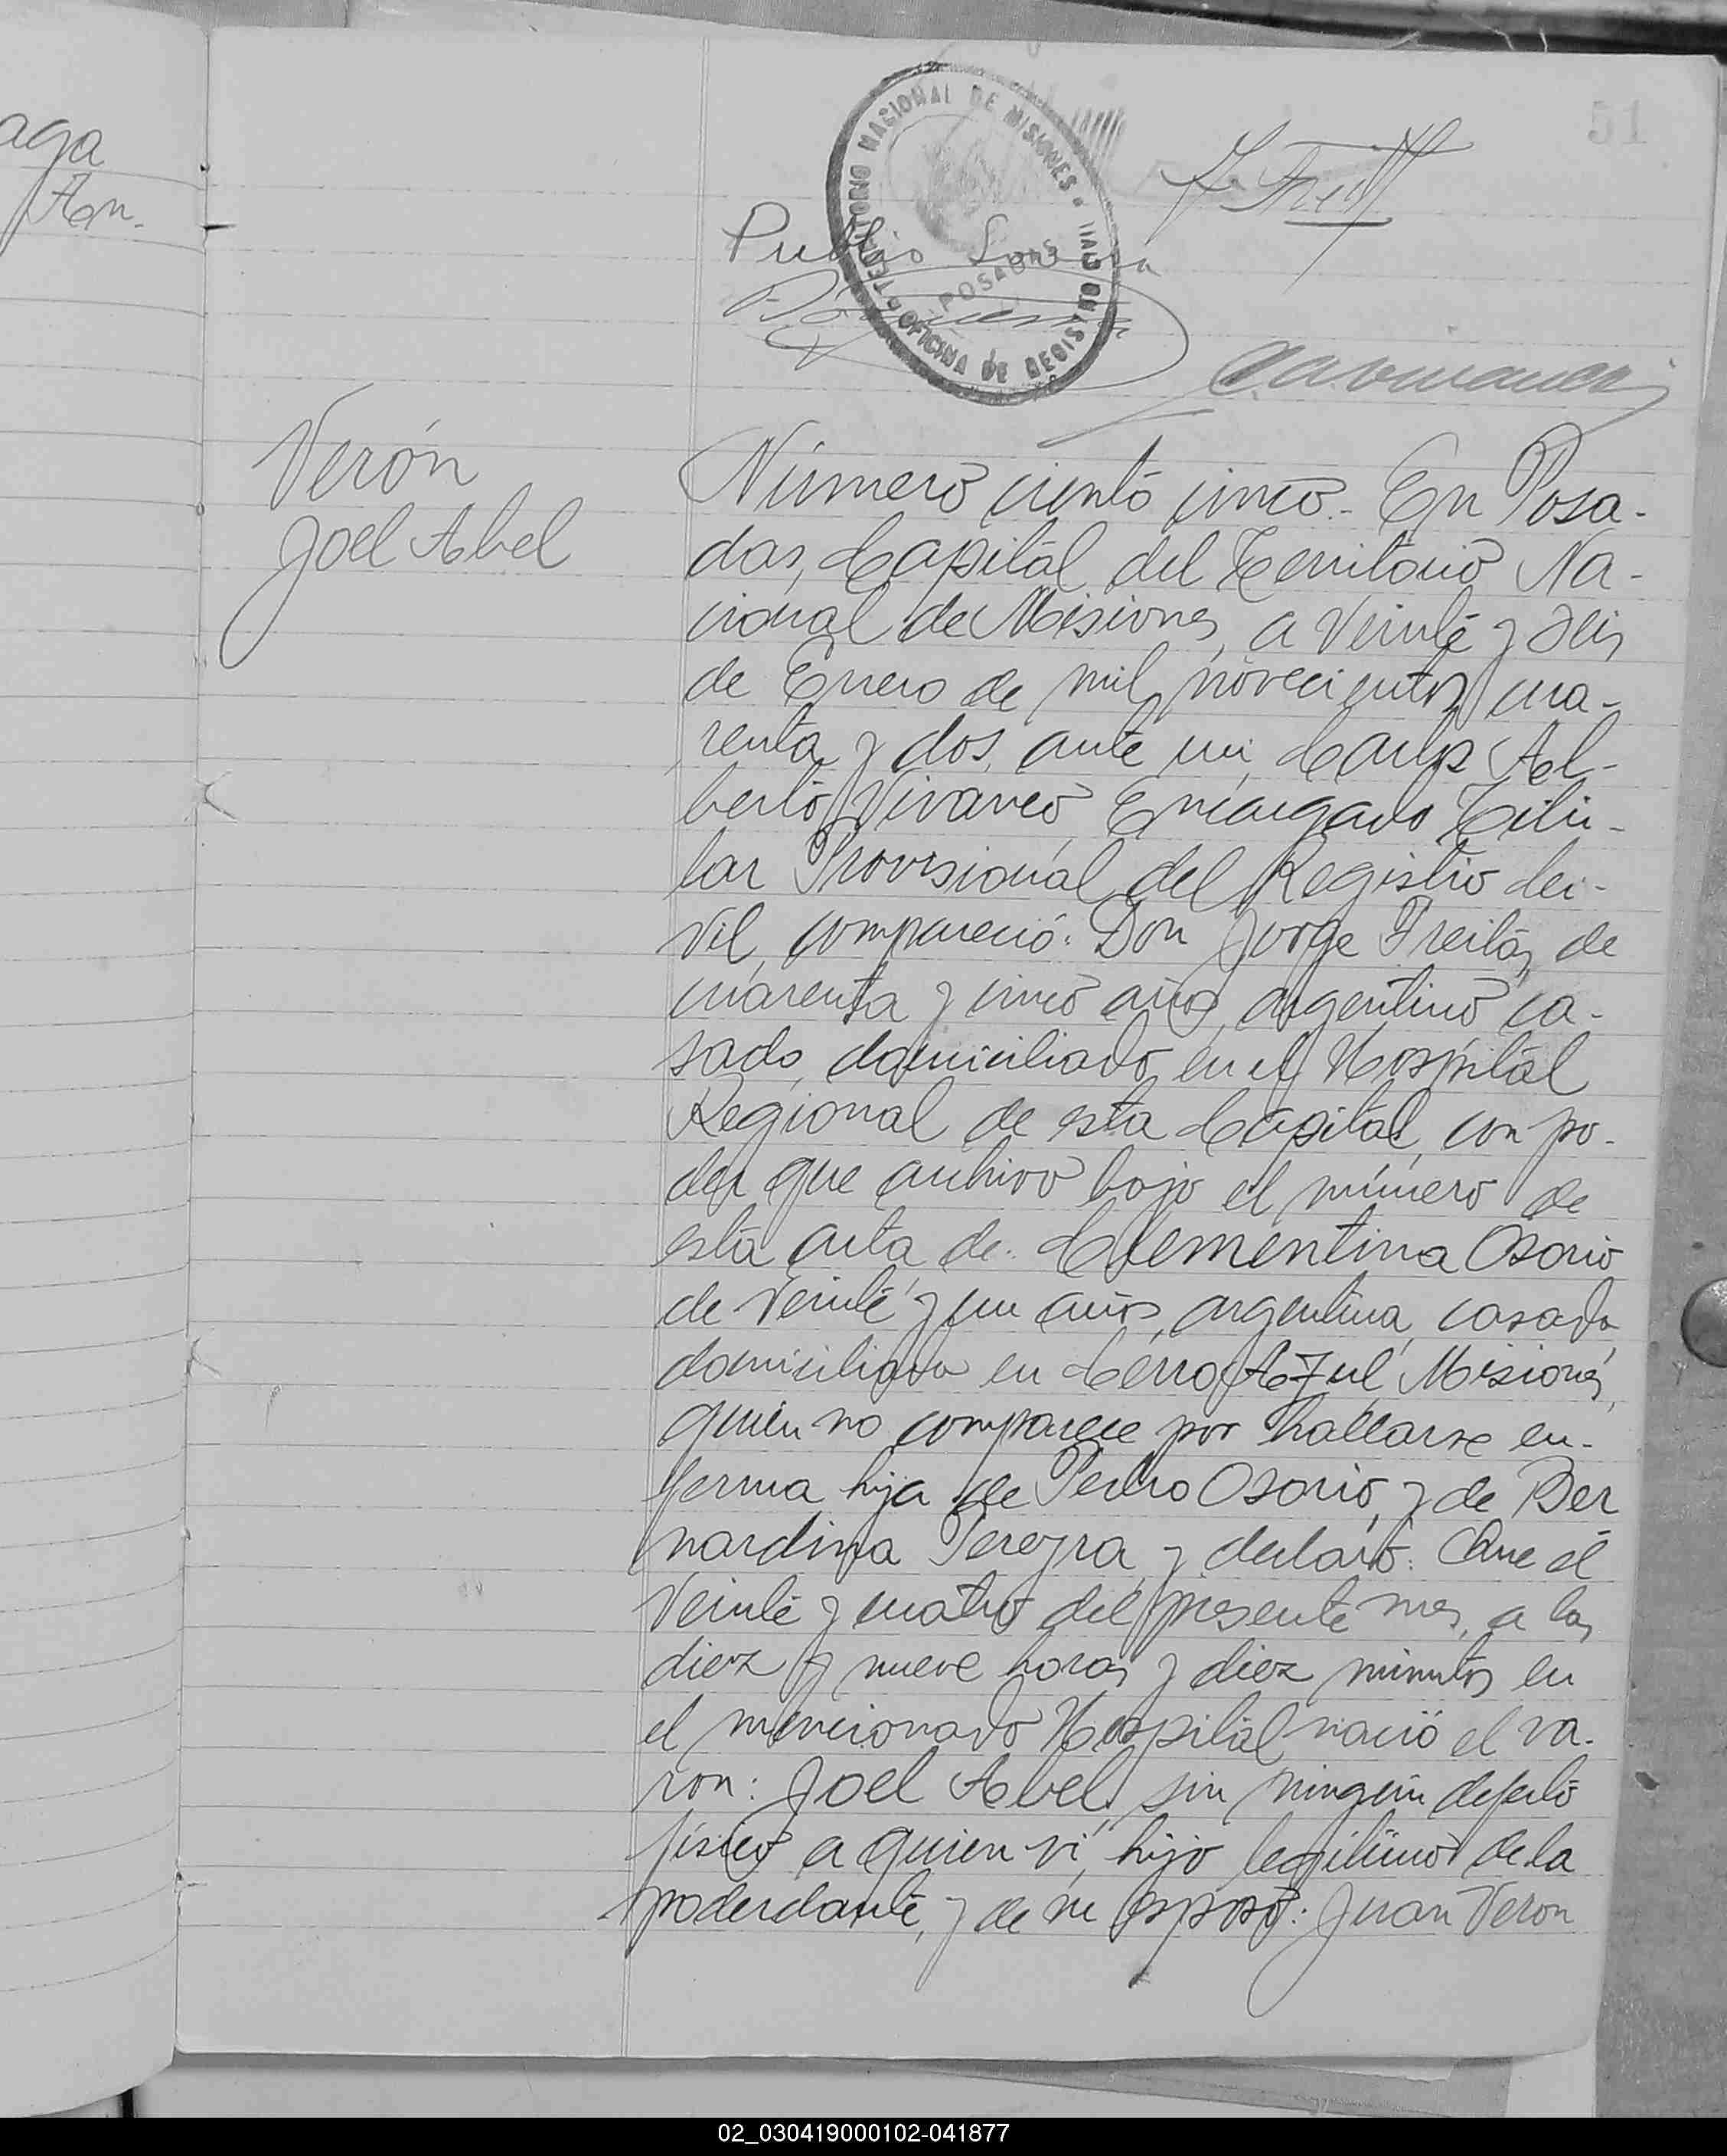 51
aga
An.
TERRITORIO NACIONAL DE MISIONES
OFICINA DE REGISTRO CIVIL
POSADAS
Publio
Verón
Joel Abel
Número ciento cinco.- En Posa-
das, Capital del Territorio Na-
cional de Misiones, a veinte y seis
de Enero de mil novecientos cua-
renta y dos, ante mi, Carlos Al-
berto Vivanco Encargado Titu-
lar Provisional del Registro Ci-
vil, compareció: Don Jorge Freitas, de
cuarenta y cinco años, argentino ca-
sado, domiciliado en el Hospital
Regional de esta Capital, con po-
der que archivo bajo el número de
esta acta de: Clementina Osorio
de veinte y un años, argentina, casada,
domiciliada en Cerro Azul, Misiones,
quien no comparece por hallarse en-
ferma hija de Pedro Osorio, y de Ber
nardina Pereyra, y declaró: Que el
veinte y cuatro del presente mes, a las
diez y nueve horas y diez minutos en
el mencionado Hospital nació el va-
ron: Joel Abel, sin ningún defecto
físico a quien vi, hijo legítimo de la
poderdante, y de su esposo: Juan Veron
02_030419000102-041877